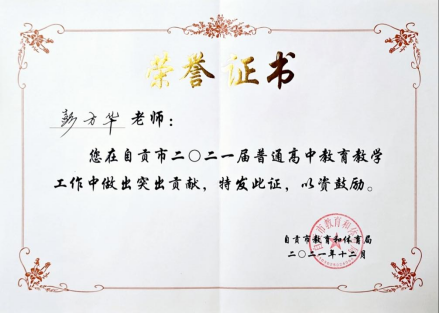 荣誉证书
彭方华 老师：
您在自贡市二〇二一届普通高中教育教学
工作中做出突出贡献，特发此证，以资鼓励。
自贡市教育和体育局
二〇二一年十二月